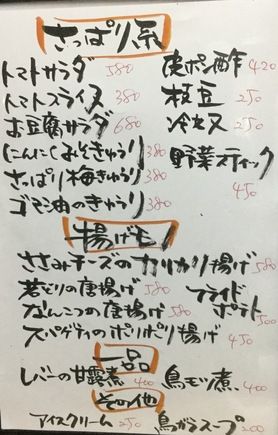 さっぱり系
トマトサラダ 580
トマトスライス 380
お豆腐サラダ 680
にんにくみそきゅうり 380
さっぱり梅きゅうり 380
ゴマ油のきゅうり 380
皮ポン酢 420
枝豆 250
冷奴 250
野菜スティック
450
揚げモノ
ささみチーズのカリカリ揚げ 580
若どりの唐揚げ 580
なんこつの唐揚げ 580
フライド
ポテト 500
スパゲティのポリポリ揚げ 450
一品
レバーの甘露煮 400 鳥モツ煮 400
その他
アイスクリーム 250 鳥ガラスープ 200